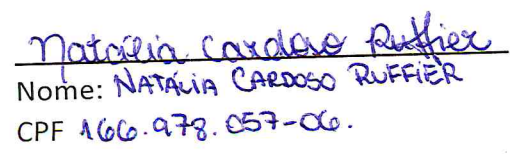 Natália Cardoso Ruffier
Nome: NATÁLIA CARDOSO RUFFIER
CPF 166.978.057-06.